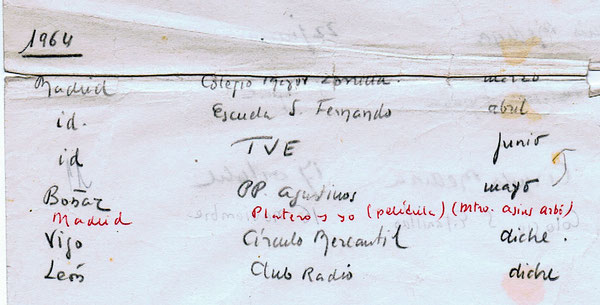 1964
Madrid Colegio Mayor Zorrilla. marzo
id. Escuela S. Fernando abril
id TVE junio
Boñar PP Agustinos mayo
Madrid Platero y yo (película) (Mtro. Asins Arbó)
Vigo Círculo Mercantil dicbe.
León Club Radio dicbe